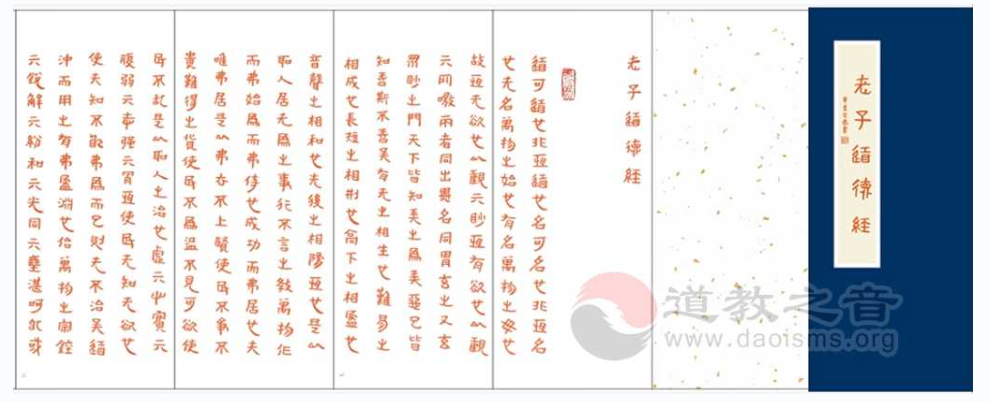 老子道德經
老子道德經
道可道也非恆道也名可名也非恆名
也无名萬物之始也有名萬物之母也
故恆无欲也以觀亓眇恆有欲也以觀
亓所噭兩者同出異名同胃玄之又玄
眾眇之門天下皆知美之為美惡已皆
知善斯不善矣有无之相生也難易之
相成也長短之相刑也高下之相盈也
音聲之相和也先後之相隋恆也是以
聖人居无為之事行不言之教萬物作
而弗始為而弗侍也成功而弗居也夫
唯弗居是以弗去不上賢使民不爭不
貴難得之貨使民不為盜不見可欲使
民不乱是以聖人之治也虛亓心實亓
腹弱亓志強亓骨恆使民无知无欲也
使夫知不敢弗為而已則无不治矣道
沖而用之有弗盈淵也佁萬物之宗銼
亓銳解亓紛和亓光同亓塵湛呵佁或
道教之音
www.daoisms.org